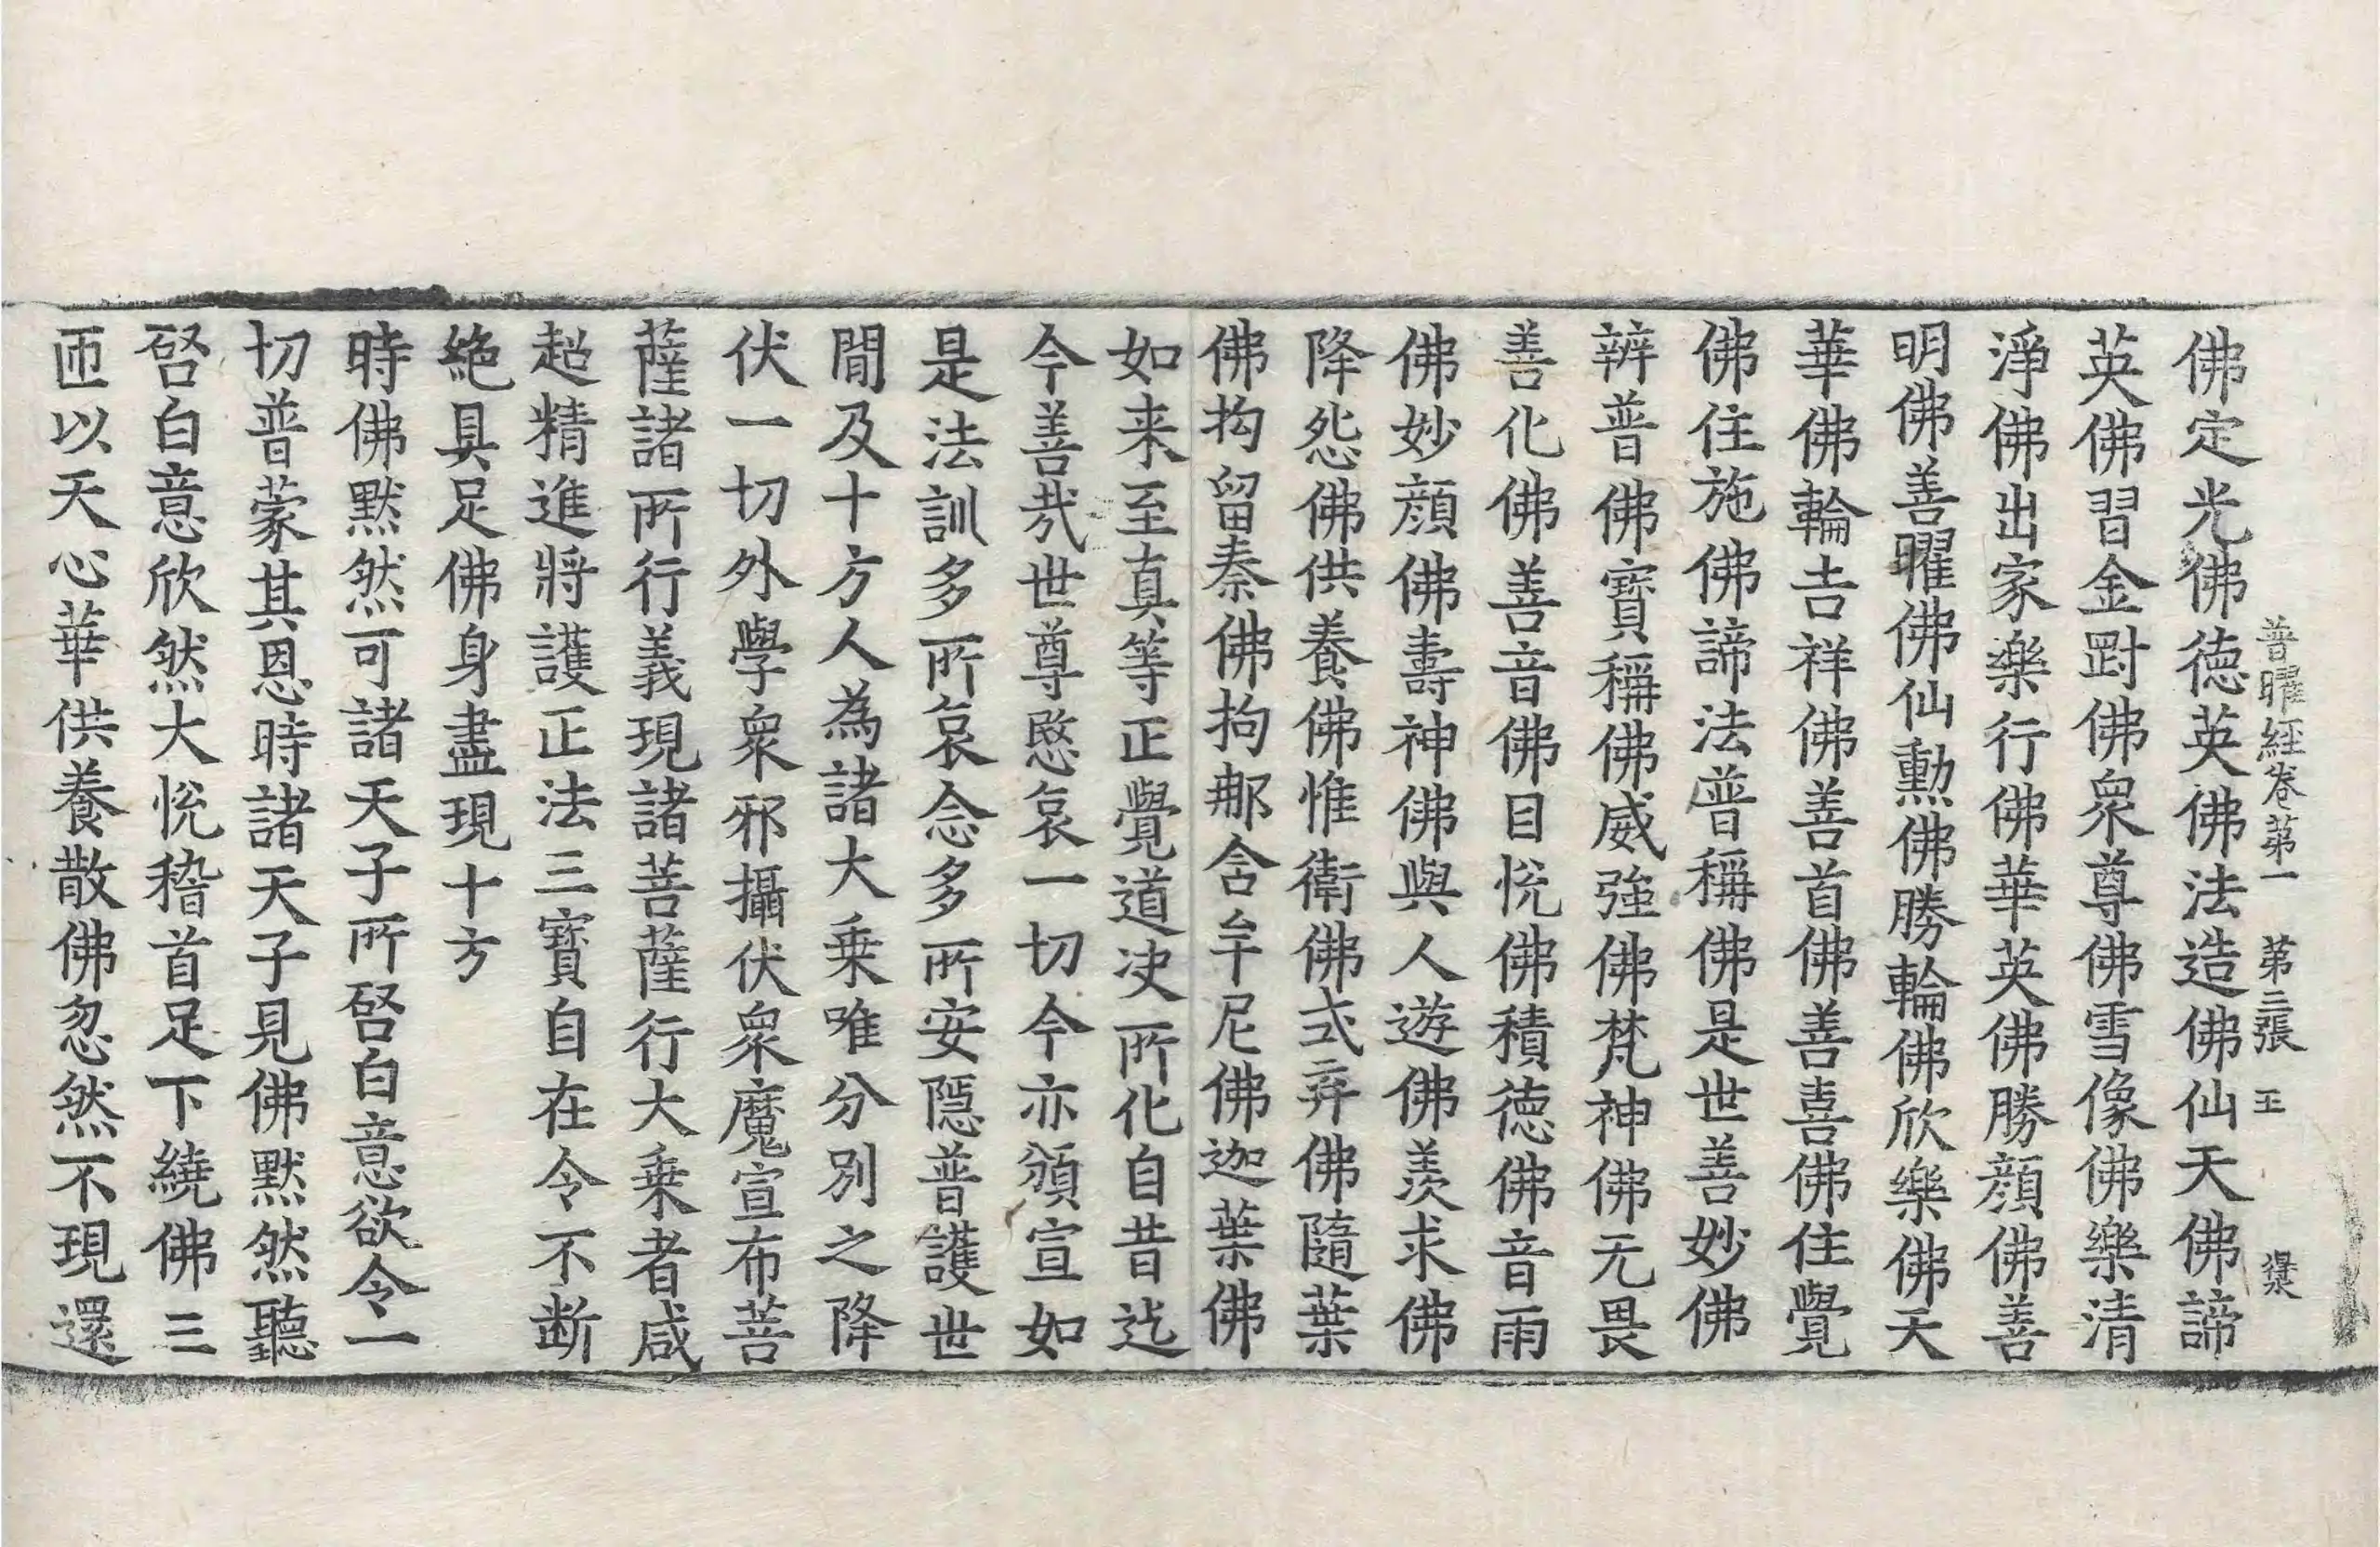 普曜經卷第一 第三張 王
佛定光佛德英佛法造佛仙天佛諦
英佛習金對佛衆尊佛雪像佛樂清
淨佛出家樂行佛華英佛勝顔佛善
明佛善曜佛仙勲佛勝輪佛欣樂佛天
華佛輪吉祥佛善首佛善喜佛住覺
佛住施佛諦法普稱佛是世善妙佛
辨普佛寶稱佛威強佛梵神佛无畏
善化佛善音佛目恱佛積徳佛音雨
佛妙顔佛壽神佛與人遊佛羨求佛
降怨佛供養佛惟衛佛式弃佛隨葉
佛拘留秦佛拘那含牟尼佛迦葉佛
如来至真等正覺道决所化自昔迄
今善㢤世尊愍哀一切今亦頒宣如
是法訓多所哀念多所安隱普護世
間及十方人為諸大乗唯分別之降
伏一切外學衆邪攝伏衆魔宣布菩
薩諸所行義現諸菩薩行大乗者咸
超精進將護正法三寳自在令不断
絶具足佛身盡現十方
時佛黙然可諸天子所啓白意欲令一
切普蒙其恩時諸天子見佛黙然聽
啓白意欣然大恱稽首足下繞佛三
匝以天心華供養散佛忽然不現還